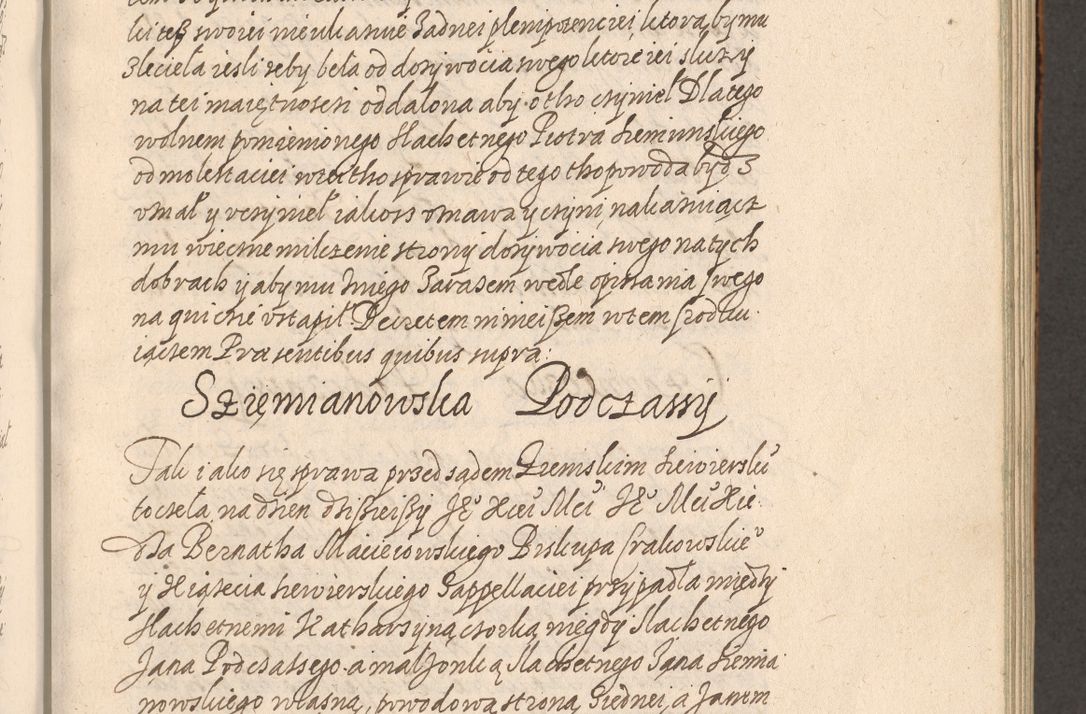 ki też swoiei nieukazanie Żadnei plenipotenciei ktorą by mu
zleciela iesli żeby bela od dożywocia swego ktore iei służy
na tei maiętnosczi oddalona aby o tho czyniel Dlatego
wolnem pomienionego Slachetnego Piotra Siemiunskiego
od molestaciei wtei tho sprawie od tego tho powoda bydz
vznał y vczynieł iakosz vznawa y czyni nakazuiącz
mu wieczne milczenie strony dożywocia swego na tych
dobrach y aby mu zniego Zarazem wedle opisania swego
na gniezne vstąpil. Decretem ninieiszem wtem skodku
iącem Præsentibus quibus supra:
Sziemianowska Podczassy
Tak iako się sprawa przed sądem Ziemskim Siewierskim
toczeła, na dzien dzisieiszy Je° Xcei Mci Je° Mci Xie
dza Bernatha Macieiowskiego Biskupa Krakowskie°
y Xiążecia Siewierskiego Zappellaciei przypadła między
Slachetnemi Katharzyną czorką niegdy Slachetnego
Jana Podczassego a małżonką Slachetnego Jana Siemia
nowskiego własną, powodową stroną Ziednei, a Janem